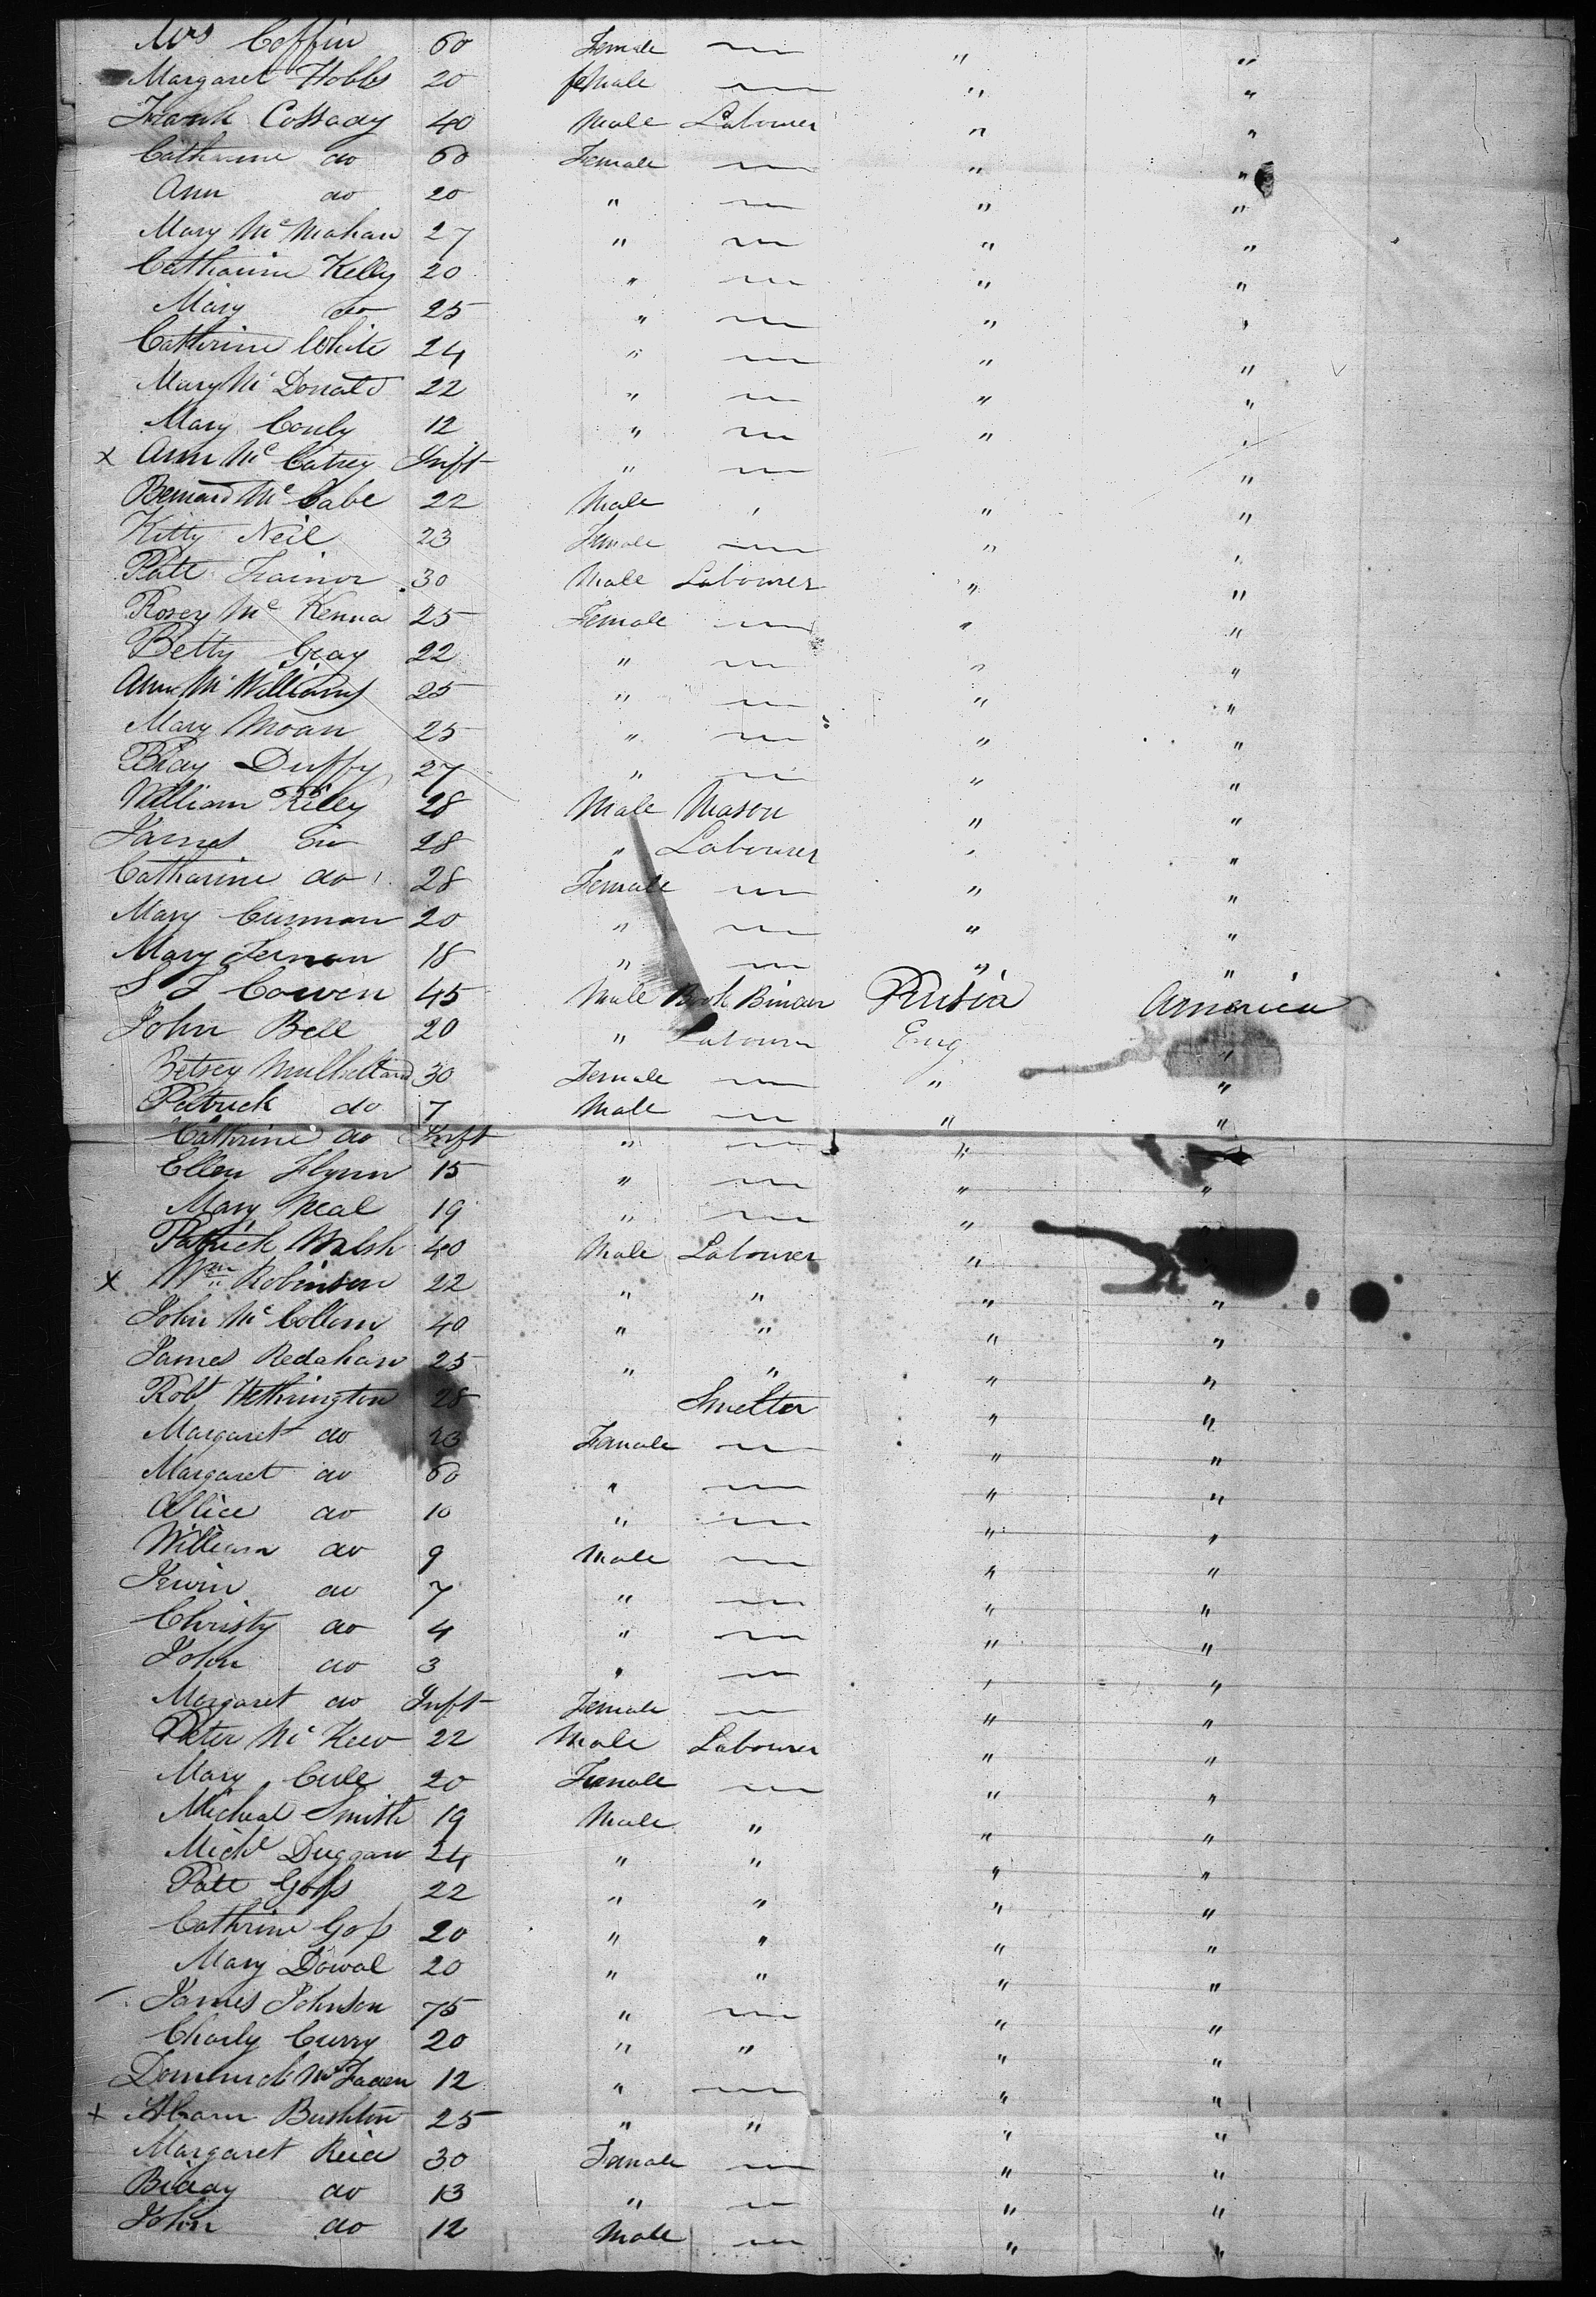 Mrs Coffin 60 Female — " "
Margaret Hobbs 20 feMale — " "
Frank Cossady 40 Male Labourer " "
Catharine do 60 Female — " "
Ann do 20 " — " "
Mary Mc Mahan 27 " — " "
Catharine Kelly 20 " — " "
Mary do 25 " — " "
Catherine White 24 " — " "
Mary Mc Donald 22 " — " "
Mary Conly 12 " — " "
x Ann Mc Catrey Inft " — "
Bernard Mc Cabe 22 Male , " "
Kitty Neil 23 Female — " "
Patt Trainor 30 Male Labourer " "
Rosey Mc Kenna 25 Female — " "
Betty Gray 22 " — " "
Ann Mc Williams 25 " — " "
Mary Moan 25 " — " "
Biday Duffy 27 " — " "
William Rilley 28 Male Mason " "
James do 28 " Labourer " "
Catharine do 28 Female — " "
Mary Cunnan 20 " — " "
Mary Fernan 18 " — " "
S J Cowen 45 Male Book Binder Prusia America
John Bell 20 " Labourer Eng "
Betsey Mulholland 30 Female — " "
Patrick do 7 Male — " "
Cathrine do Inft " — "
Ellen Flynn 15 " — " "
Mary Neal 19 " — "
Patrick Walsh 40 Male Labourer "
x Wm Robinson 22 " " " "
John Mc Collum 40 " " " "
James Redahan 25 " " " "
Robt Hethrington 28 Smelter " "
Margaret do 23 Female — " "
Margaret do 60 " — " "
Allice do 10 " — " "
William do 9 Male — " "
Irwin do 7 " — " "
Christy do 4 " — " "
John do 3 " — " "
Margaret do Inft Female — " "
Peter Mc Kew 22 Male Labourer " "
Mary Cull 20 Female — " "
Micheal Smith 19 Male " " "
Michl Duggan 24 " " " "
Patt Goss 22 " " " "
Cathrine Goss 20 " " " "
Mary Dowal 20 " " " "
James Johnson 75 " — " "
Charly Curry 20 " " " "
Dominick McFaden 12 " — " "
x Abam Bushton 25 " " " "
Margaret Rice 30 Female — " "
Biday do 13 " — " "
John do 12 Male — " "